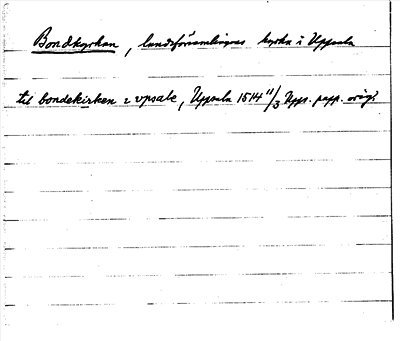 Bondkyrkan, landsförsamlingens kyrka i Uppsala
til bondekirken i vpsale, Uppsala 1514 11/3 Upps. papp. orig.